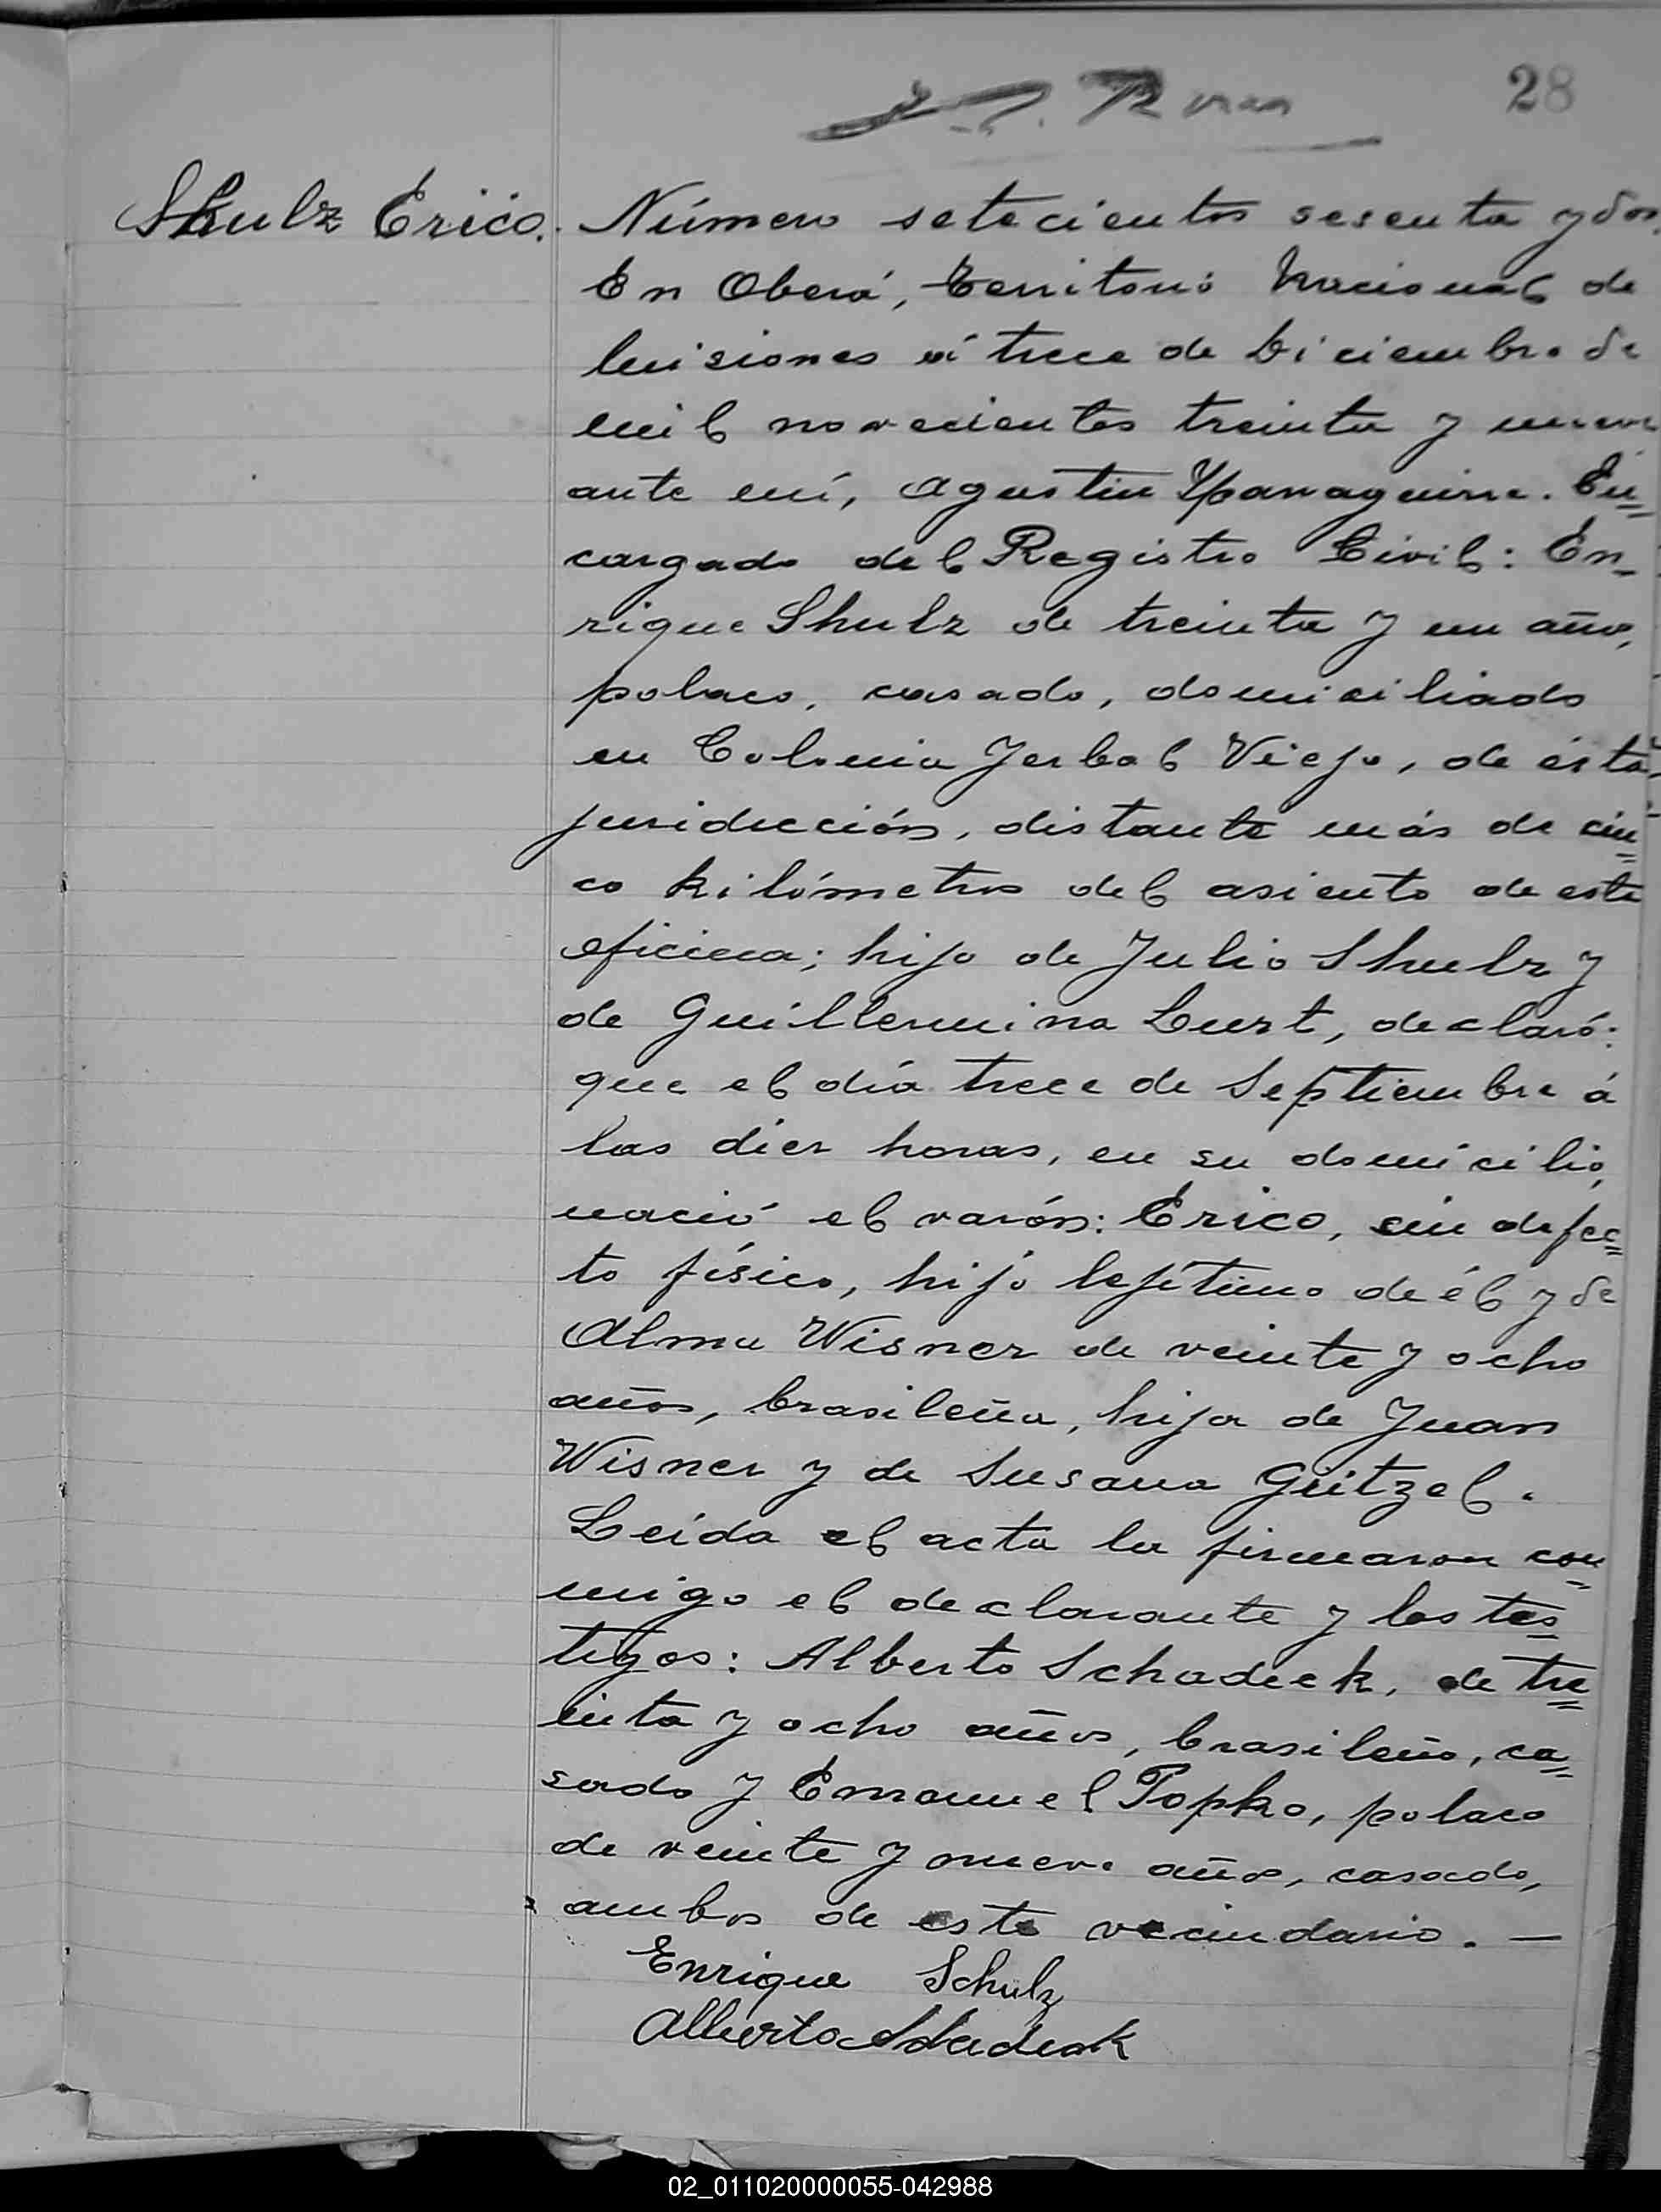 28
Shulz Erico.
Número setecientos sesenta y dos.
En Oberá, Territorio Nacional de
Misiones á trece de Diciembre de
mil novecientos treinta y nueve
ante mí, Agustin Yparraguirre. En=
cargado del Registro Civil: En-
rique Shulz de treinta y un años,
polaco, casado, domiciliado
en Colonia Yerbal Viejo, de ésta
juridicción, distante más de cin=
co kilómetros del asiento de esta
oficina; hijo de Julio Shulz y
de Guillermina Lurt, declaró:
que el día trece de Septiembre á
las diez horas, en su domicilio,
nació el varón: Erico, sin defec=
to físico, hijo lejítimo de él y de
Alma Wisner de veinte y ocho
años, brasileña, hija de Juan
Wisner y de Susana Güitzel.
Leída el acta la firmaron con=
migo el declarante y los tes=
tigos: Alberto Schadeck, de tre=
inta y ocho años, brasileño, ca=
sado y Emanuel Popko, polaco
de veinte y nueve años, casado,
ambos de este vecindario. —
Enrique Schulz
Alberto Schadeck
02_011020000055-042988